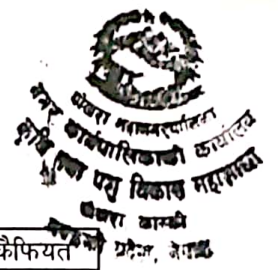 पोखरा महानगरपालिका
नगर कार्यपालिकाको कार्यालय
कृषि तथा पशु विकास महाशाखा
पोखरा कास्की
गण्डकी प्रदेश, नेपाल
कैफियत